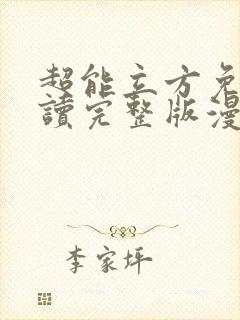 超能立方免
讀完整版漫
李家坪